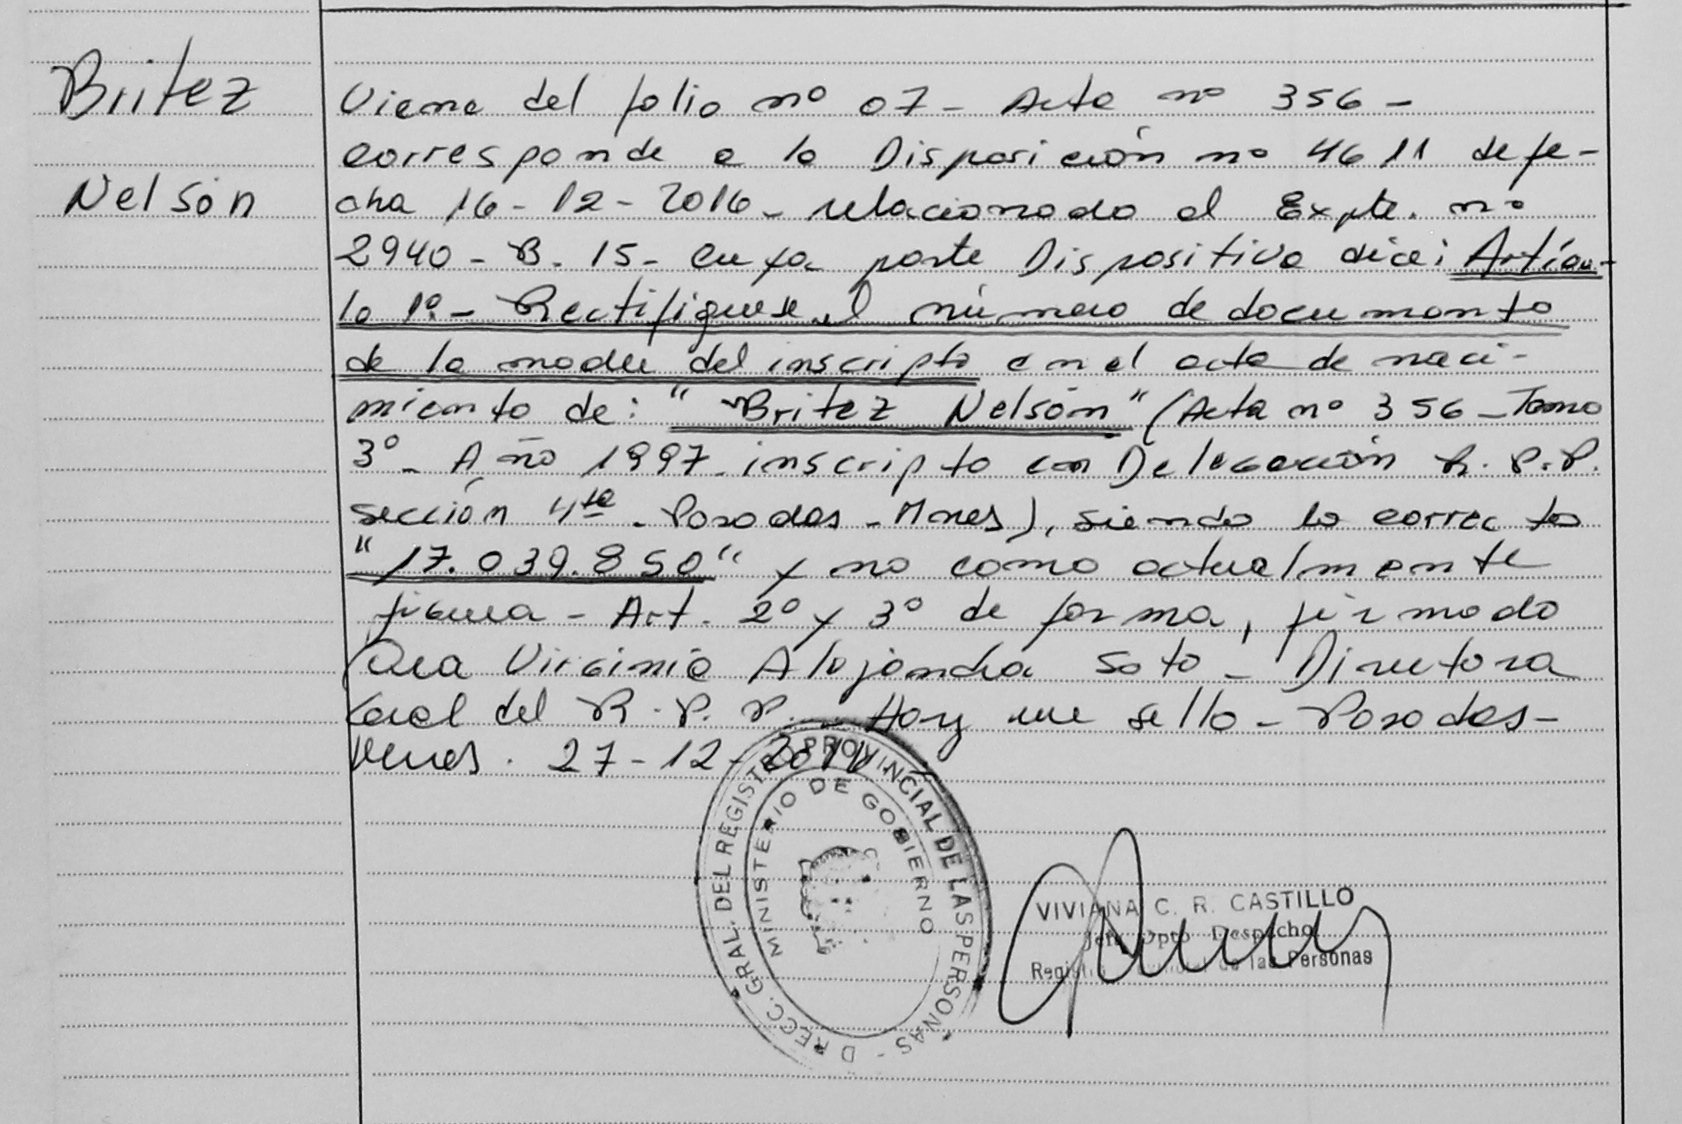 Britez
Nelsón
Viene del folio nº 07 - Acta nº 356 -
corresponde a la Disposición nº 4611 de fe-
cha 16-12-2016 - relacionado al Expte. nº
2940 - B. 15 - cuya parte Dispositiva dice: Artícu-
lo 1º - Rectifíquese el número de documento
de la madre del inscripto en el acta de naci-
miento de: "Britez Nelsón" (Acta nº 356 - Tomo
3º - Año 1997 - inscripto en Delegación R. P. P.
sección 4ta - Posadas - Mnes), siendo lo correcto
"17.039.850" y no como actualmente
figura - Art. 2º y 3º de forma, firmado
Dra Virginia Alejandra Soto - Directora
Gral del R. P. P. - Hay un sello - Posadas -
Mnes. 27-12-
DIRECC. GRAL. DEL REGISTRO PROVINCIAL DE LAS PERSONAS -
MINISTERIO DE GOBIERNO
VIVIANA C. R. CASTILLO
Jefe Dpto Despacho
Registro de las Personas